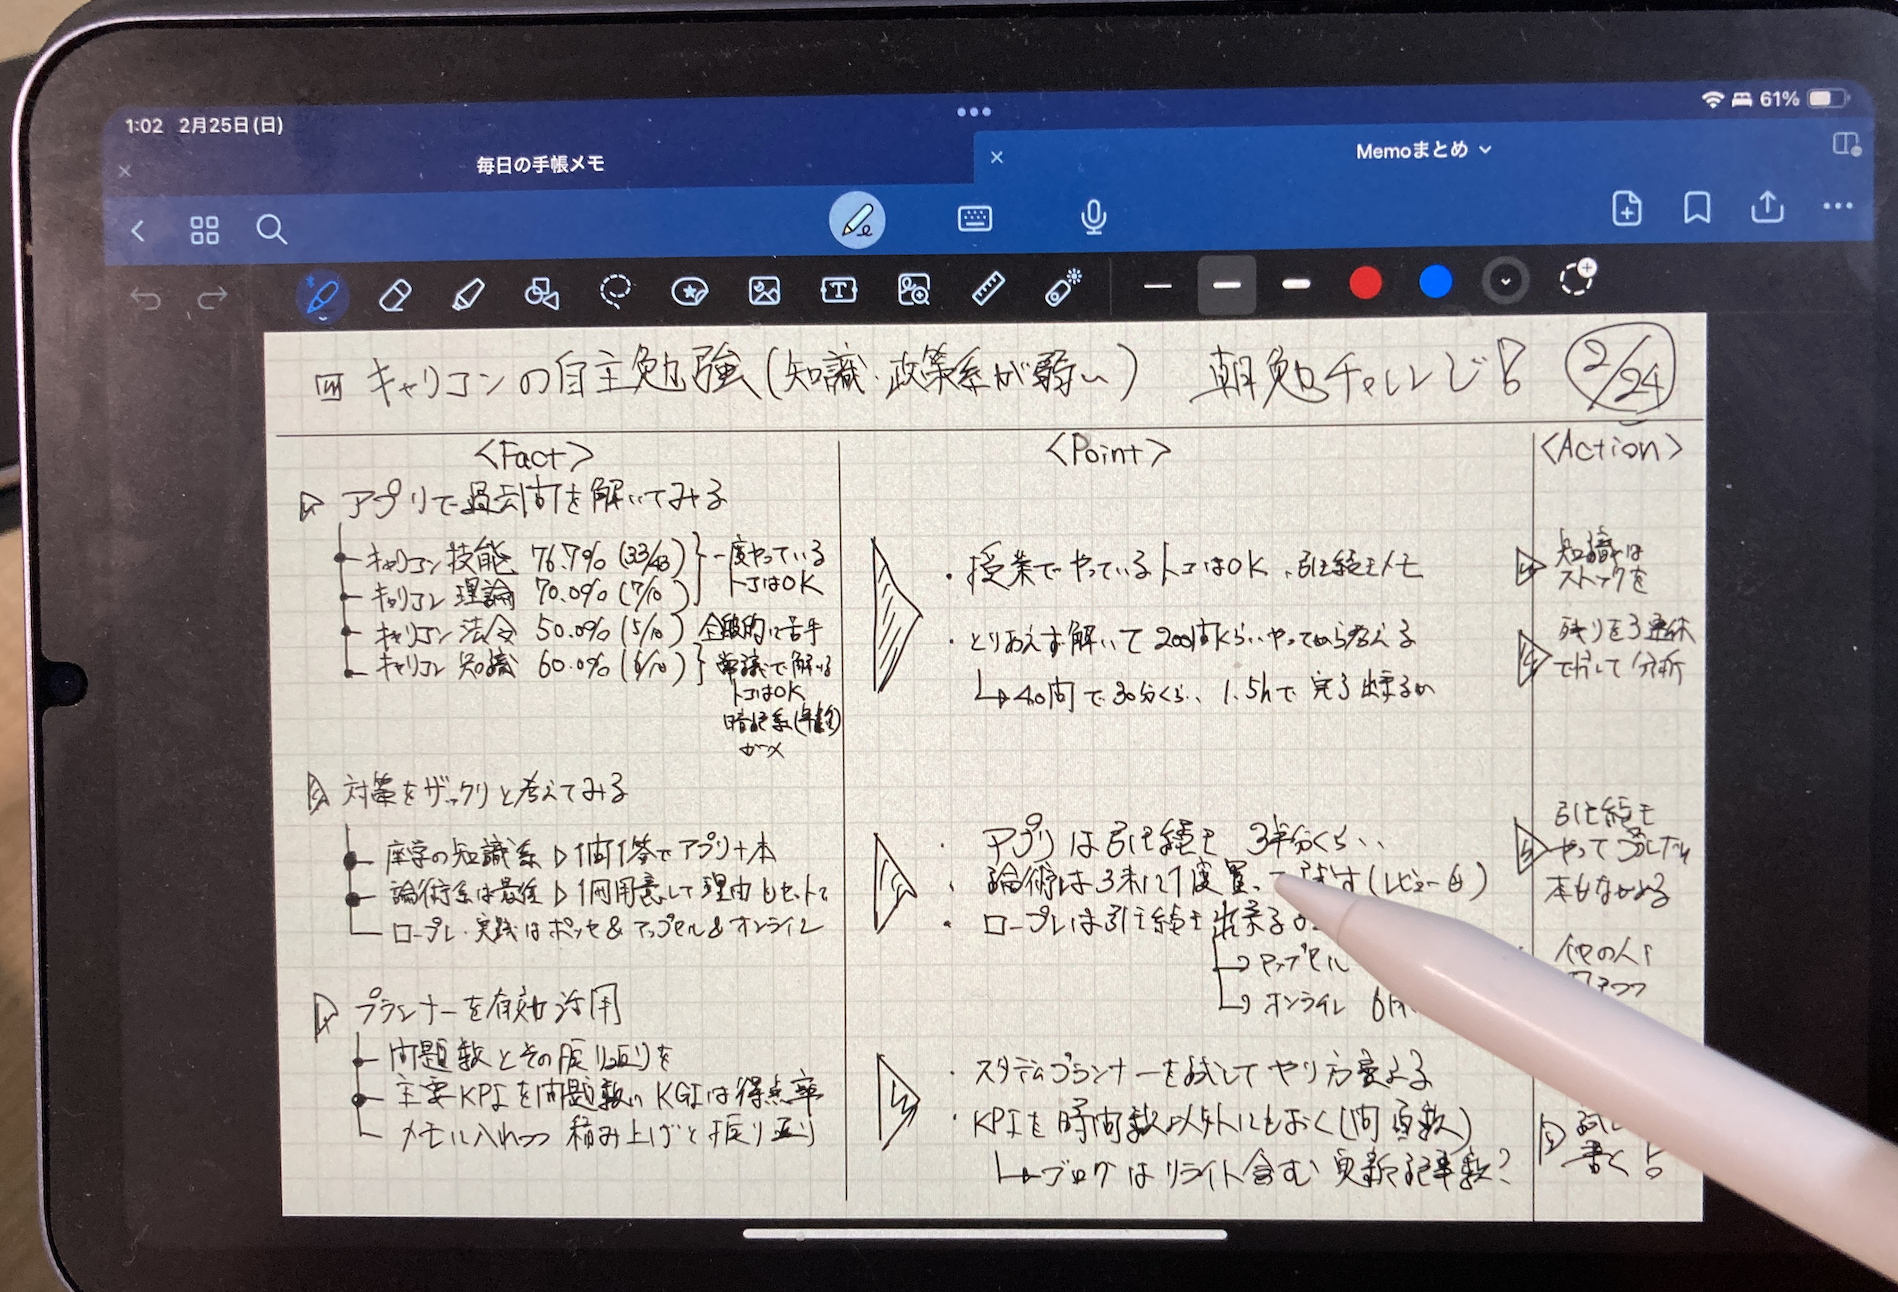 1:02 2月25日(日)
61%
毎日の手帳メモ
Memoまとめ
キャリコンの自主勉強(知識・政策系が弱い) 朝勉チャレンジ! 2/24
<Fact>
アプリで過去問を解いてみる
キャリコン技能 76.7% (33/43)
キャリコン理論 70.0% (7/10)
一度やっている
トコはOK
キャリコン法令 50.0% (5/10) 全般的に苦手
キャリコン知識 60.0% (6/10)
常識で解ける
トコはOK
暗記系
が×
対策をザックリと考えてみる
座学の知識系 ▷ 1問1答でアプリ+本
論術系は最強 ▷ 1冊用意して理由もセットで
ロープレ・実践はポッセ&アップセル&オンライン
プランナーを有効活用
問題数とその振り返りを
主要KPIを問題数に KGIは得点率
メモに入れつつ 積み上げと振り返り
<Point>
・授業でやっているトコはOK、引き続きメモ
・とりあえず解いて200問くらいやってから考える
↳40問で30分くらい 1.5hで完了出来るか
・アプリは引き続き 3半分くらい
・論術は3末に1度買って試す(レビュー
・ロープレは引き続き出来る
アップセル
オンライン 6
・スタディプランナーを試してやり方変える
・KPIを時間数以外にもおく(問題数)
↳ブログはリライト含む更新記事数?
<Action>
知識は
ストックを
残りを3連休
で片して分析
引き続き
やって
本もながめる
他の人
書く